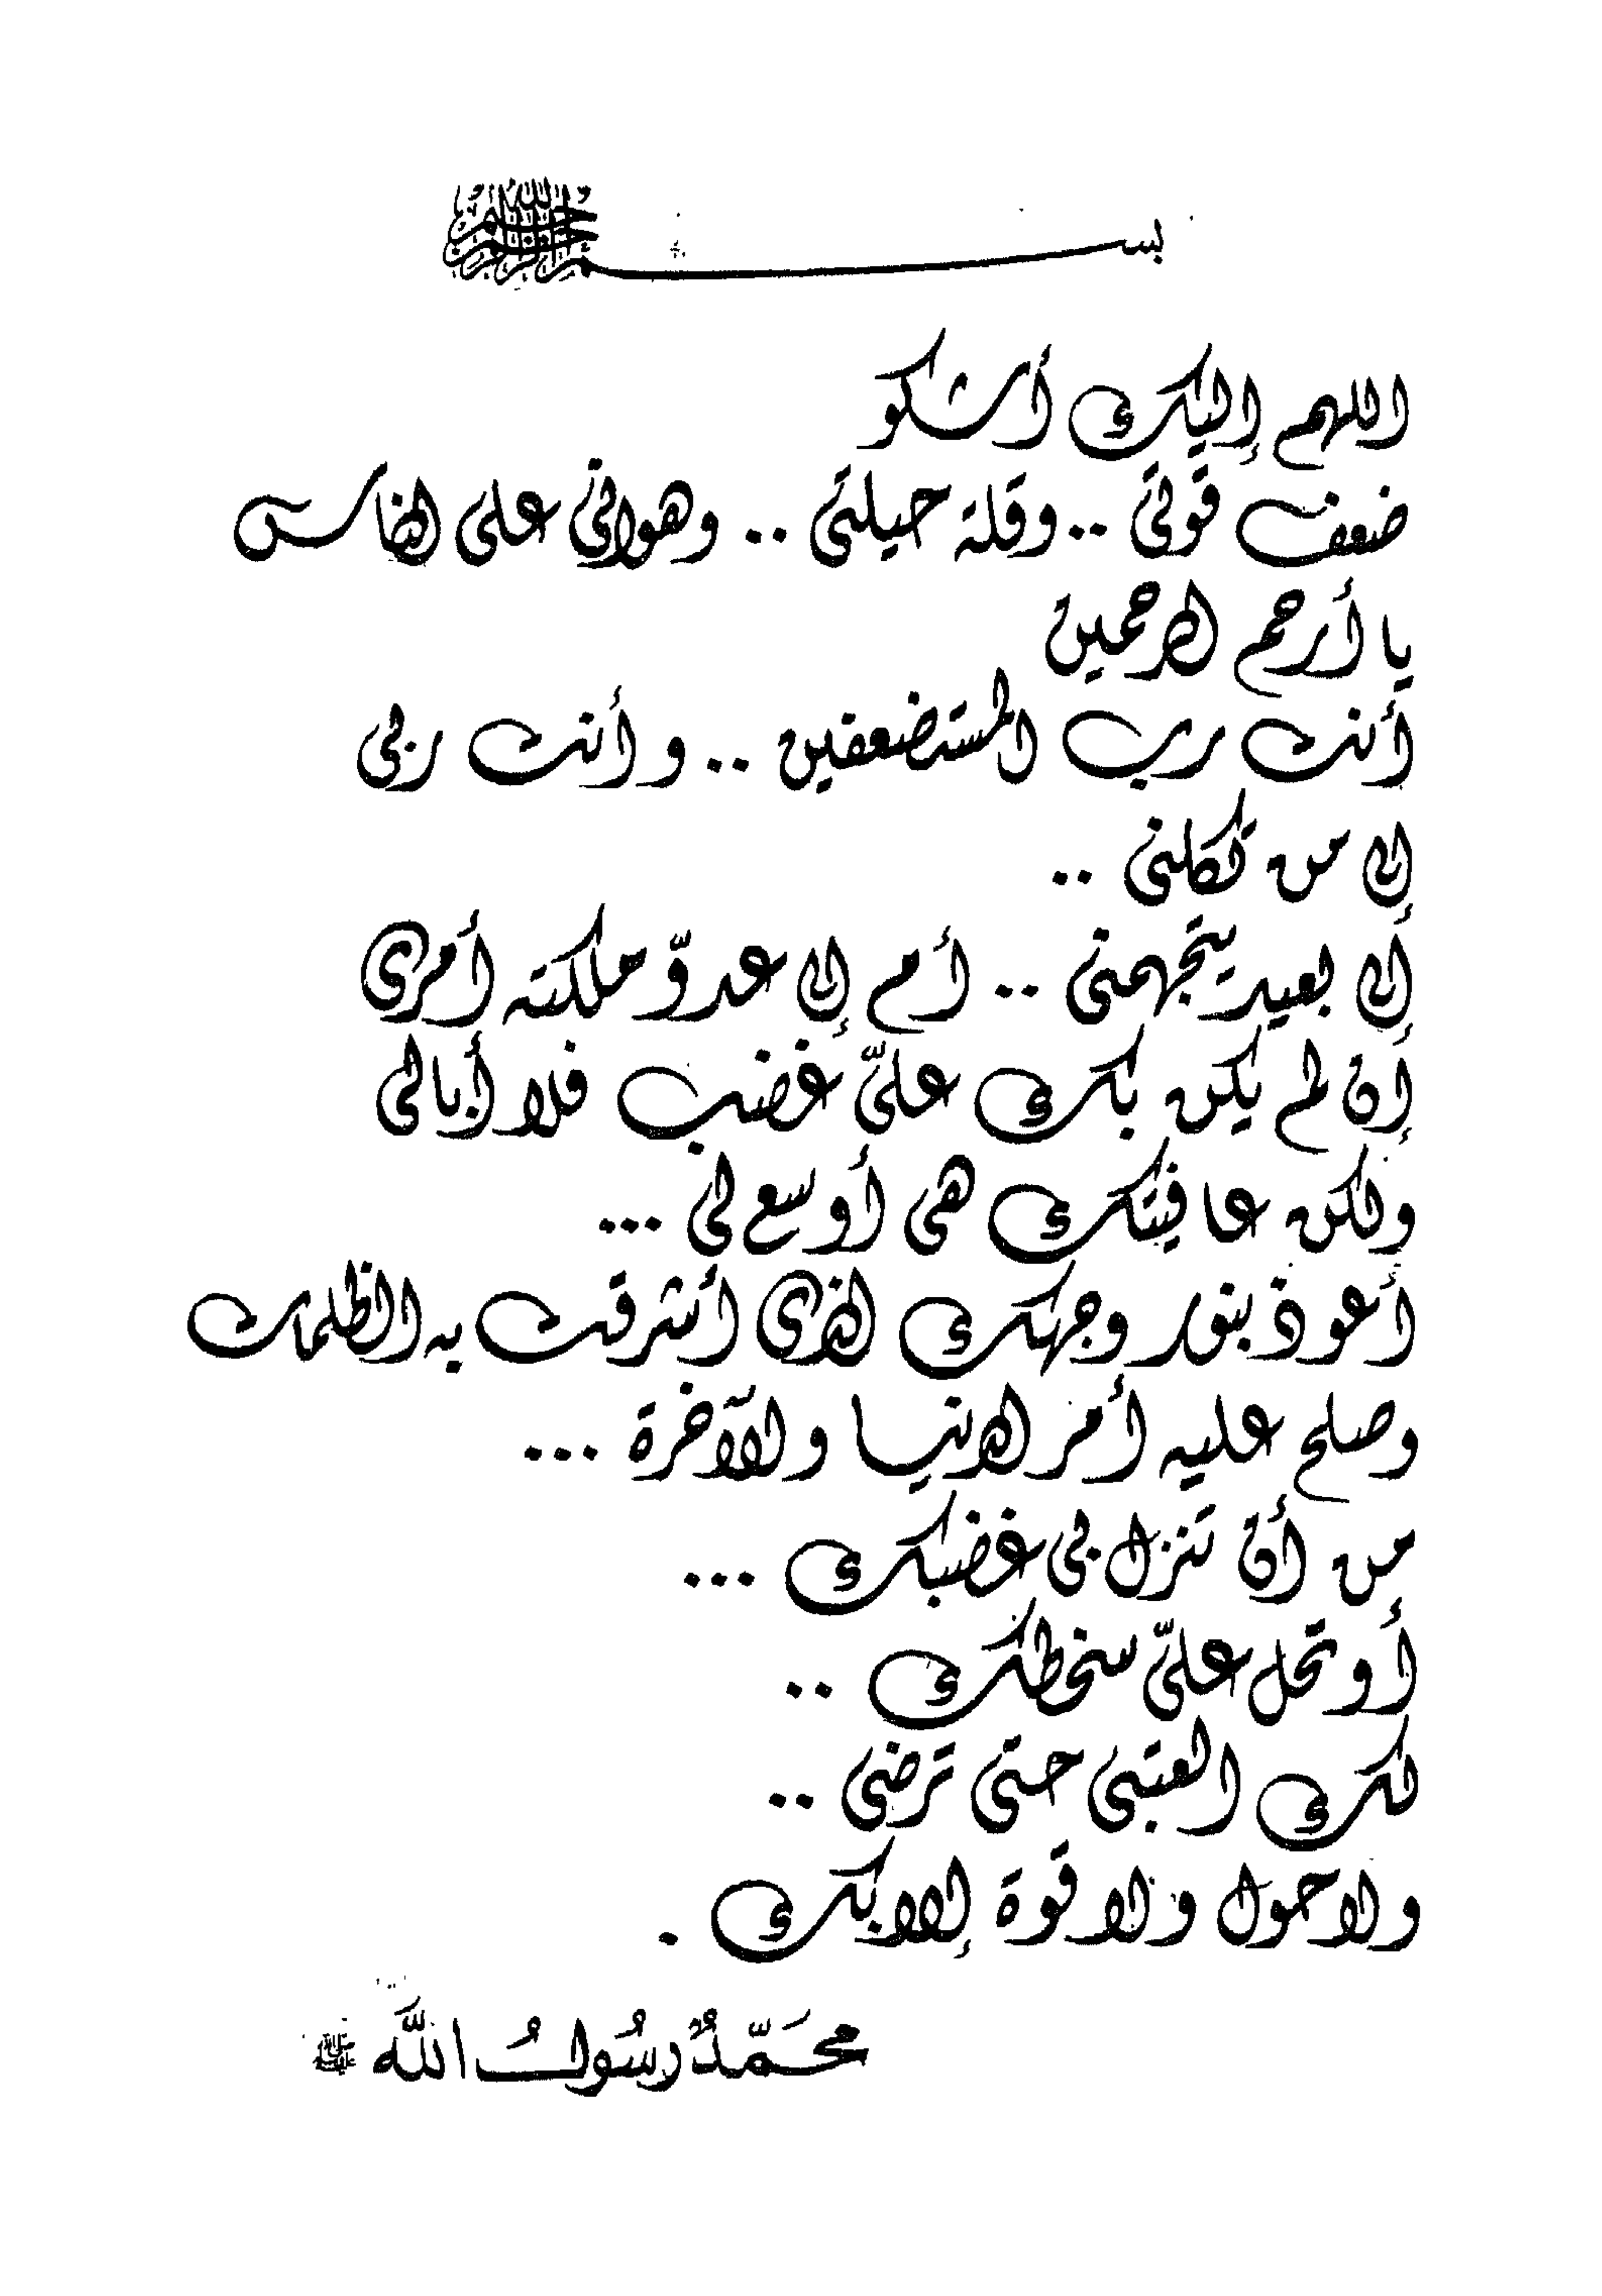 بسم الله الرحمن الرحيم
اللهم إليك أشكو
ضعف قوتى .. وقلة حيلتى .. وهوانى على الناس
يا أرحم الرحمين
أنت رب المستضعفين .. و أنت ربى
إلى من تكلنى ..
إلى بعيد يتجهمنى .. أم إلى عدوّ ملكته أمرى
إن لم يكن بك علىّ غضب فلا أبالى
ولكن عافيتك هى أوسع لى ...
أعوذ بنور وجهك الذى أشرقت به الظلمات
وصلح عليه أمر الدنيا والآخرة ...
من أن تنزل بى غضبك ...
أو تحل علىّ سخطك ..
لك العتبى حتى ترضى ..
ولا حول ولا قوة إلا بك .
محَمّدٌ رسُولُ اللَّه ﷺ